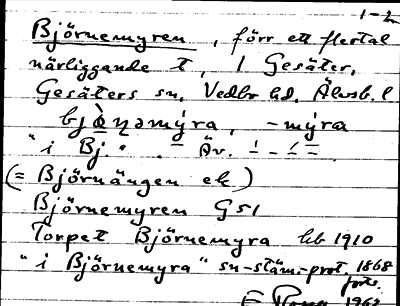 1-2
Björnemyren, förr ett flertal
närliggande t, 1 Gesäter,
Gesäters sn, Vedbo hd. Älvsb. l
bjὼηəmýra, -mýra
"i Bj. Äv.
(= Björnängen ek)
Björnemyren Gs1
Torpet Björnemyra hb 1910
"i Björnemyra" sn-stäm-prot. 1868
forts.